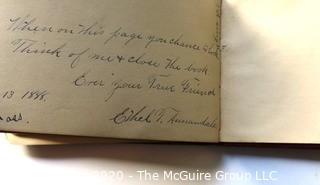 When on this page you chance to look
Think of me & close the book
Ever your True Friend
13 1898.
Ethel F.
Mass.
2020 - © The McGuire Group LLC